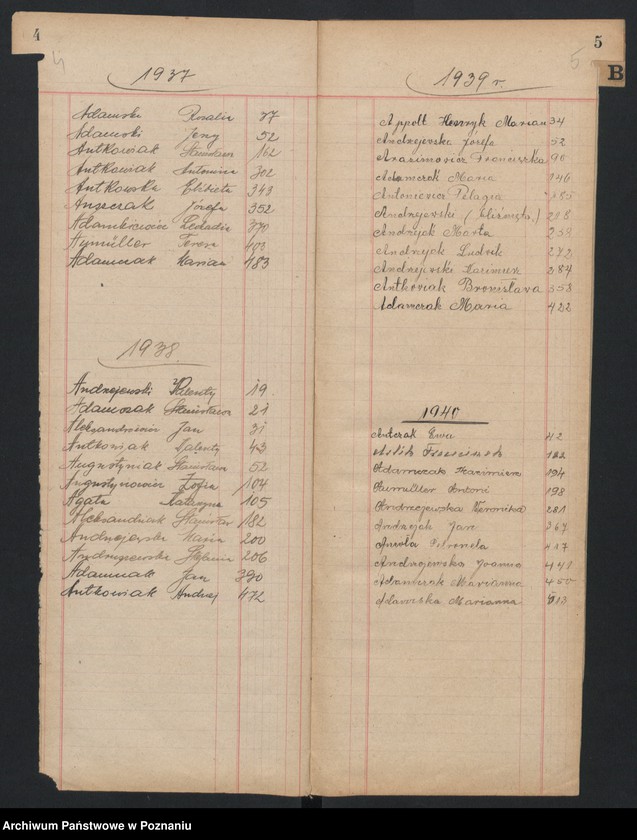 4
4
1937
Adamska Rozalia 37
Adamski Jerzy 52
Antkowiak Stanisława 162
Antkowiak Antonina 302
Antkowska Elżbieta 343
Anszczak Józefa 352
Adamkiewicz Leokadia 370
Ajmüller Teresa 403
Adamczak Marian 483
1938.
Andrzejewski Walenty 19.
Adamczak Stanisława 21
Aleksandrowicz Jan 31
Antkowiak Walenty 43
Augustyniak Stanisława 52
Augustynowicz Zofia 104
Agata Katarzyna 105
Aleksandrzak Stanisław 182
Andrzejewska Maria 200
Andrzejewska Stefania 206
Adamczak Jan 390
Antkowiak Andrzej 472
5
5
B
1939 r.
Appolt Henryk Marian 34
Andrzejewska Józefa 52
Franciszka 96
Adamczak Maria 146
Antoniewicz Pelagia 185
Andrzejewski (bliźnięta.) 218
Andrzejak Marta 238
Andrzejak Ludwik 272
Andrzejewski Kazimierz 284
Antkowiak Bronisława 358
Adamczak Maria 422
1940
Antczak Ewa 42
Franciszek 122
Adamczak Kazimierz 194
Antoni 198
Andrzejewska Weronika 281
Andrzejak Jan 367
Petronela 417
Andrzejewska Joanna 448
Adamczak Marianna 450
Adamska Marianna 513
Archiwum Państwowe w Poznaniu